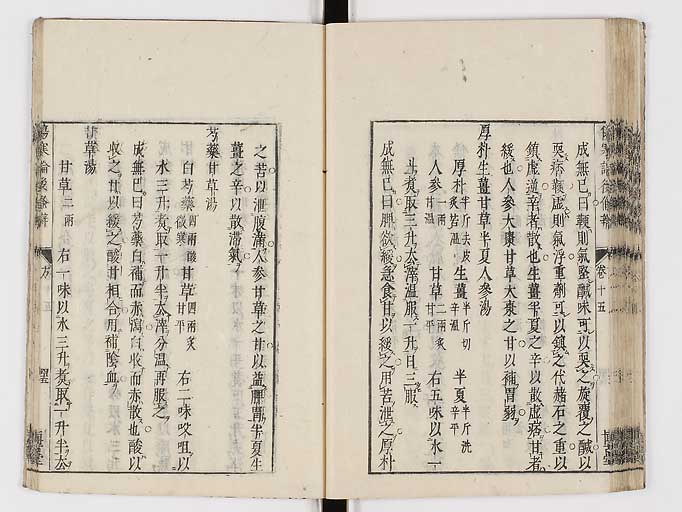 成無已曰鞕則氣堅鹹味可以耎之旋覆之鹹以
耎痞鞕虛則氣浮重劑可以鎮之代赭石之重以
鎮虛逆辛者散也生薑半夏之辛以散虛痞甘者
緩也人參大棗甘草大棗之甘以補胃弱
厚朴生薑甘草半夏人參湯
厚朴 半斤去皮 炙苦溫 生薑 半斤切 辛溫 半夏 半斤洗 辛平
人參 一兩 甘溫 甘草 二兩炙 甘平 右五味以水一
斗煮取三升去滓溫服一升日三服
成無已曰脾欲緩急食甘以緩之用苦泄之厚朴
之苦以泄腹滿人參甘草之甘以益脾胃半夏生
薑之辛以散滯氣
芍藥甘草湯
白芍藥 四兩酸 微寒 甘草 四兩炙 甘平 右二味㕮咀以
水三升煮取一升半去滓分溫再服之
成無巳曰芍藥白補而赤瀉白收而赤散也酸以
收之甘以緩之酸甘相合用補陰血
甘草湯
甘草 二兩 右一味以水三升煮取一升半去
卷十五